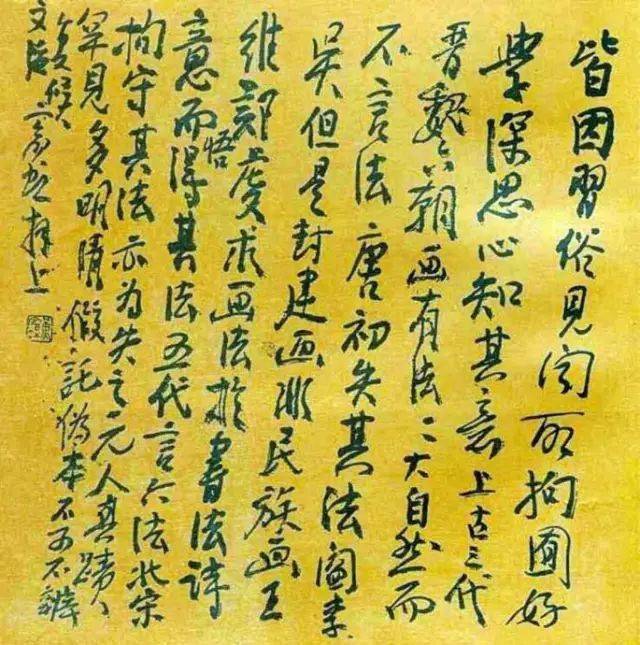 皆因習俗見闻所拘囿好
學深思心知其意上古三代
晋魏六朝画有法〻大自然而
不言法唐初失其法阎李
吴但是封建画非民族画王
维郑虔求画法於書法詩
意而悟得其法五代言六法北宋
拘守其法亦为失之元人真蹟
罕見多明清假託偽本不可不辨
宾虹拜上